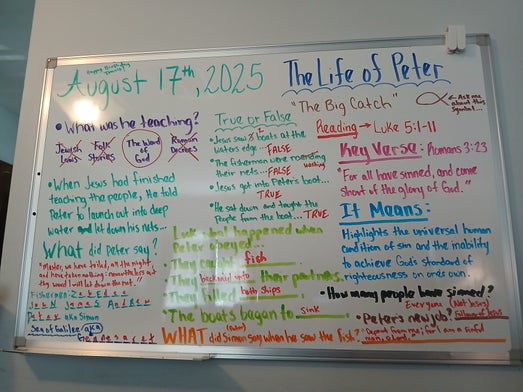 Happy Birthday
August 17th, 2025
The Life of Peter
"The Big Catch"
Ask me
about this
symbol...
Reading → Luke 5:1-11
Key Verse: Romans 3:23
"For all have sinned, and come
short of the glory of God."
It Means:
Highlights the universal human
condition of sin and the inability
to achieve God's standard of
righteousness on one's own.
• How many people have sinned?
Everyone (Not Jesus)
• Peter's new job? Follower of Jesus
"Depart from me; for I am a sinful
man, O Lord."
• What was he teaching?
Jewish Laws
Folk Stories
The Word of God
Roman Decrees
• When Jesus had finished
teaching the people, He told
Peter to launch out into deep
water and let down his nets...
What did Peter say?
"Master, we have toiled all the night,
and have taken nothing: nevertheless at
thy word I will let down the net."
Fishermen: Zebedee
John James Andrew
Peter aka Simon
Sea of Galilee/aka
Gennesaret
True or False
• Jesus saw 3 2 boats at the
waters edge... FALSE
• The fishermen were mending
washing
their nets... FALSE
• Jesus got into Peter's boat...
TRUE
• He sat down and taught the
People from the boat... TRUE
Luke: what happened when
Peter obeyed...
• They caught fish
• They beckoned unto their partners.
• They filled both ships
• The boats began to sink
WHAT did Simon say when he saw the fish?